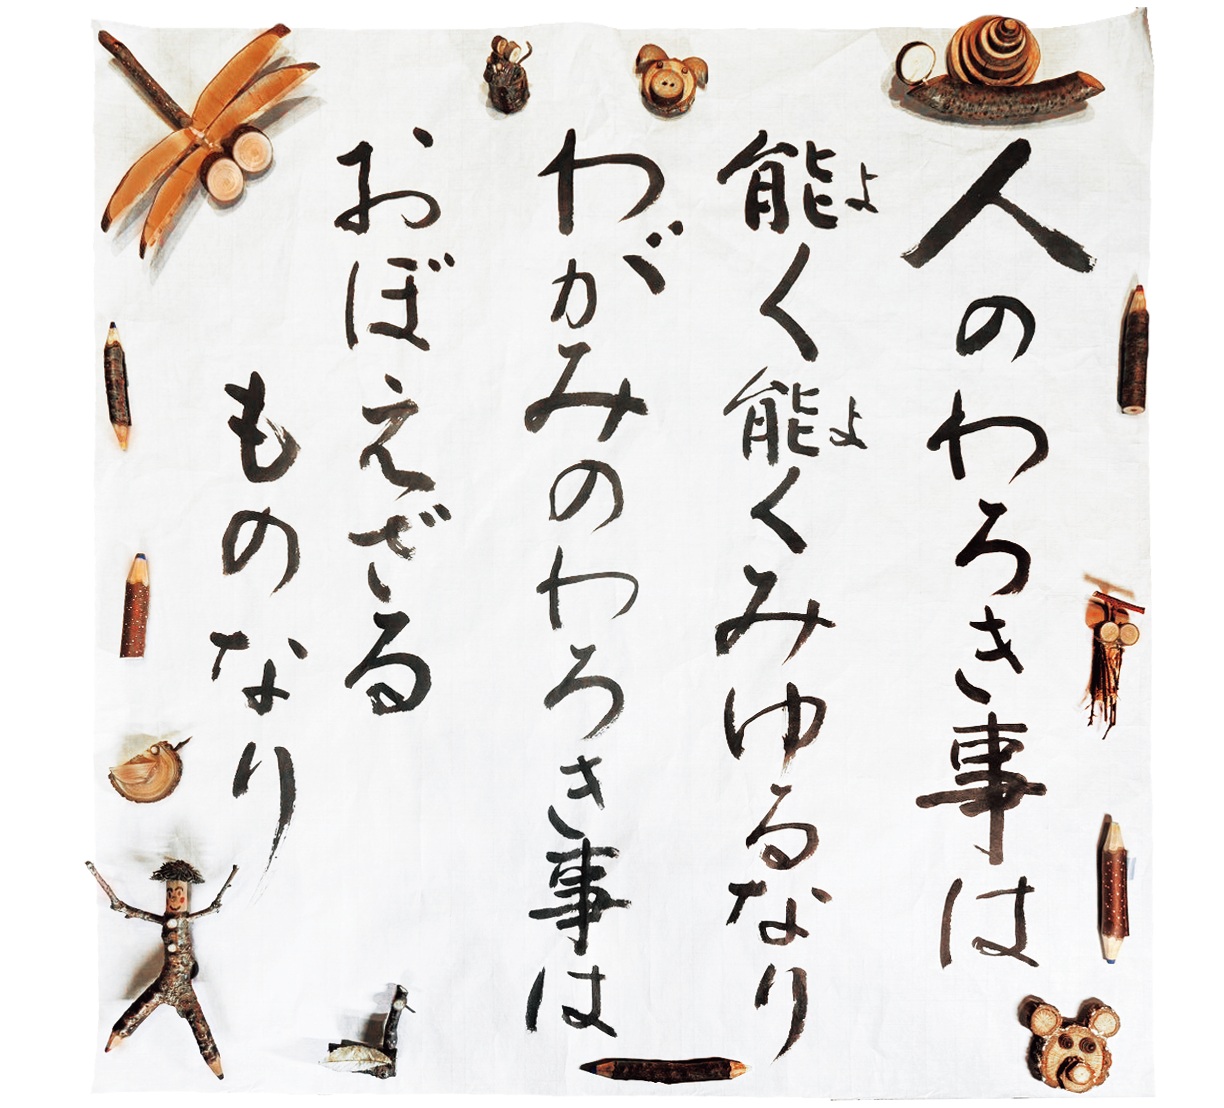 人のわろき事は
能く能くみゆるなり
よ
よ
わがみのわろき事は
おぼえざる
ものなり